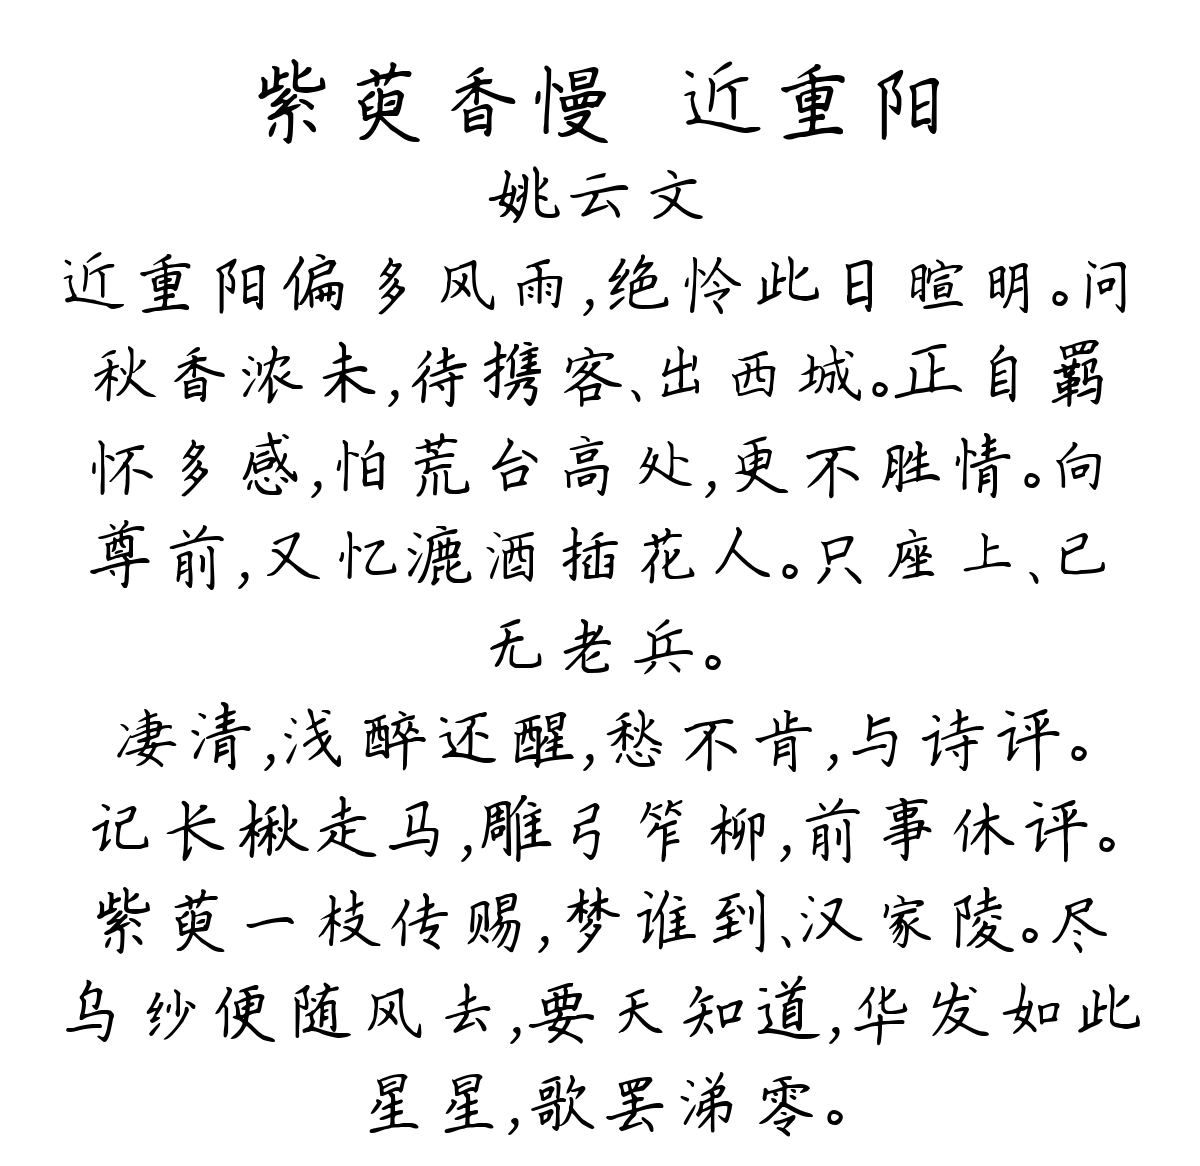 紫萸香慢 近重阳
姚云文
近重阳偏多风雨,绝怜此日暄明。问
秋香浓未,待携客、出西城。正自羁
怀多感,怕荒台高处,更不胜情。向
尊前,又忆漉酒插花人。只座上、已
无老兵。
凄清,浅醉还醒,愁不肯,与诗评。
记长楸走马,雕弓笮柳,前事休评。
紫萸一枝传赐,梦谁到、汉家陵。尽
乌纱便随风去,要天知道,华发如此
星星,歌罢涕零。